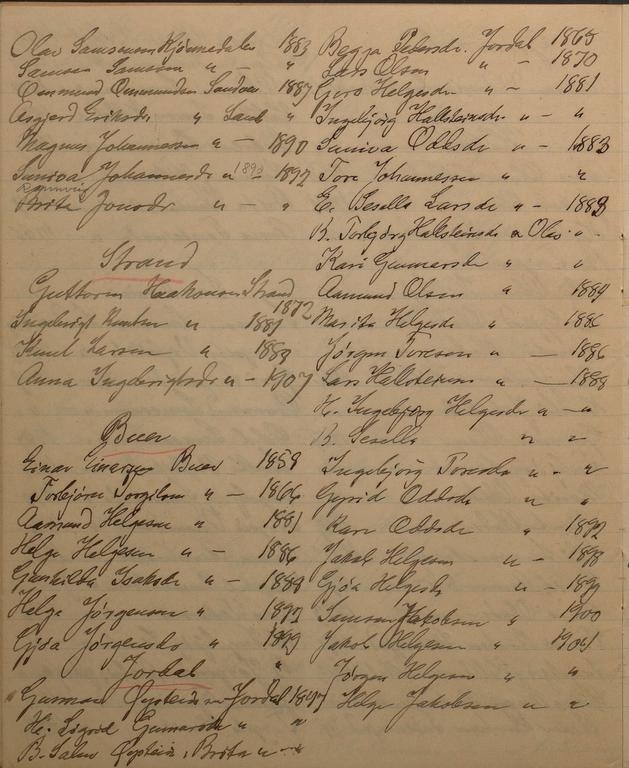 Olav Samsonson Kjönnedalen 1883
Samson Samson " — "
Ommund Ommundson Sandven 1887
Asgjerd Eriksdr " Sand "
Magnus Johannesson " — 1890
Suniva Johannesdr " 1892 — 1892
Brita Jonsdr " — "
Strand
Guttorm Haakonson Strand 1872
Ingebrigt Knutson " 1881
Knud Larson " 1883
Anna Ingebrigtsdr " — 1907
Buer
Einar Einarson Buer 1859
Torbjörn Torgilson " — 1866
Aamund Helgeson " 1881
Helge Helgeson " — 1886
Gunhilda Isaksdr " — 1889
Helge Jörgenson " 1892
Gjöa Jörgensdr " 1899
Jordal "
Gunnar Öystein Jordal 1847
H. Sigrid Gunnarsdr " "
B. Salm Öystein, Brita " — "
Begga Pedersdr. Jordal 1865
Lars Olson " — 1870
Gero Helgesdr " — 1881
Ingebjörg Hallsteinsdr " — "
Suniva Oddsdr " — 1883
Tore Johannesson " "
E. Sesella Larsdr " — 1883
B. Torbjörg Hallsteinsdr a Olav " .
Kari Gunnarsdr " "
Aamund Olson " 1884
Marita Helgesdr " 1886
Jörgen Toreson " — 1886
Lars Hallsteinson " — 1888
H. Ingebjörg Helgesdr " — "
B. Sesella " "
Ingebjörg Toresdr " — "
Gyrid Oddsdr " "
Kari Oddsdr " 1892
Jakob Helgeson " — 1898
Gjöa Helgesdr " — 1899
Samson Jakobson " 1900
Jakob Helgeson " 1901
Jörgen Helgeson " "
Helge Jakobson " "